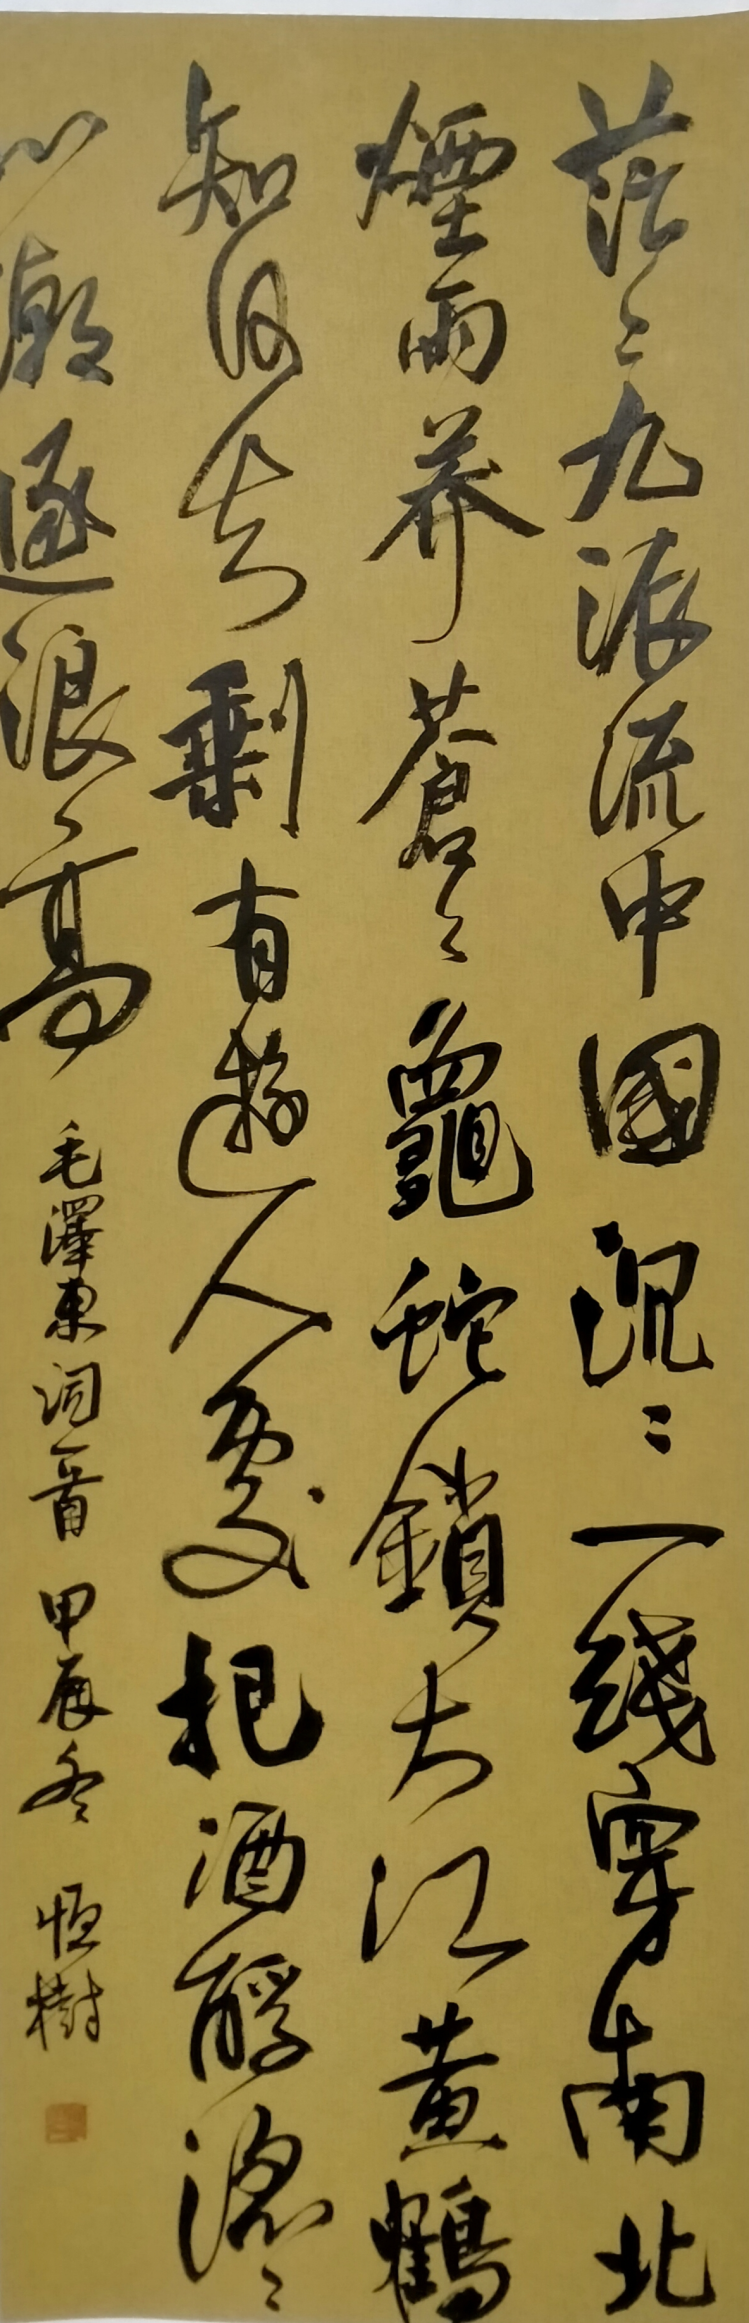 茫々九派流中國沉々一綫穿南北
煙雨莽蒼々龜蛇鎖大江黄鶴
知何去剩有遊人處把酒酹滔々
心潮逐浪高
毛澤東词一首 甲辰冬 恒樹